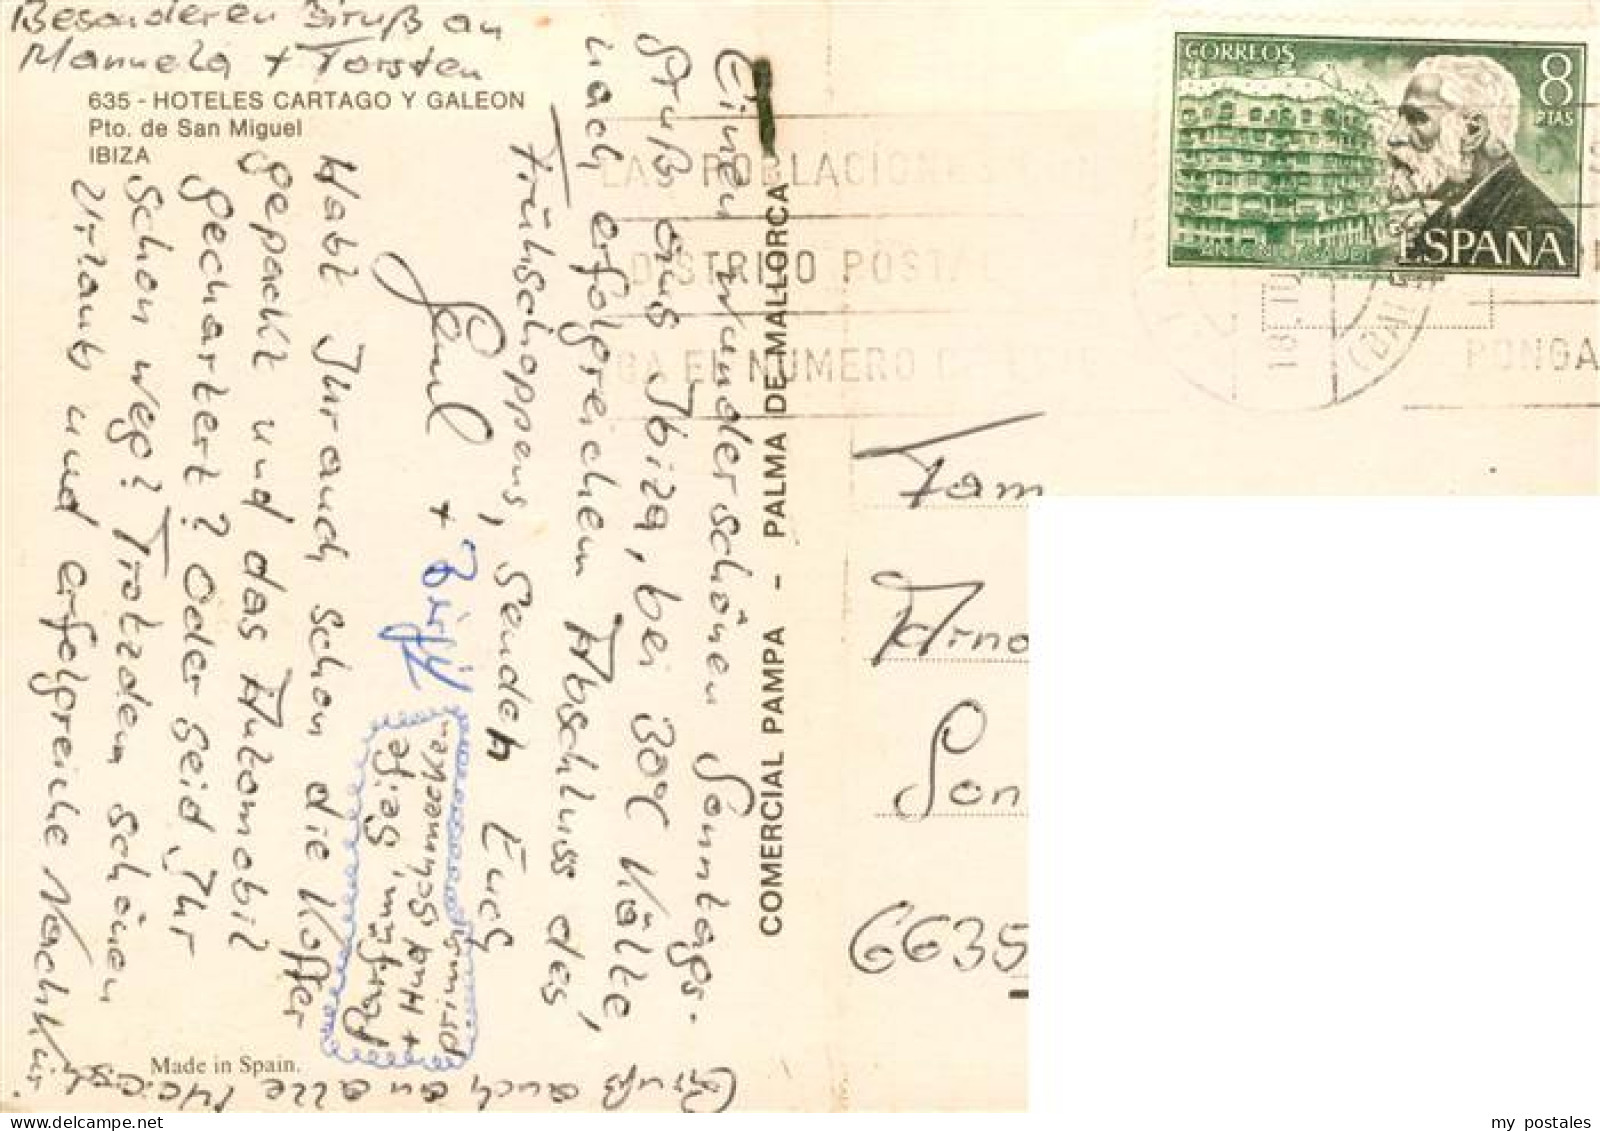 Besonderen Gruß an
Manuela + Torsten
635 - HOTELES CARTAGO Y GALEON
Pto. de San Miguel
IBIZA
Einen wunderschönen Sonntags-
gruß aus Ibiza, bei 30°C Kälte,
nach erfolgreichem Abschluss des
Frühschoppens, senden Euch
+
Parfüm, Seife
+ Hud schmecken
prima
Habt Ihr auch schon die Koffer
gepackt und das Automobil
gechartert? Oder seid Ihr
schon weg? Trotzdem schönen
Urlaub und erfolgreiche
Gruß auch an alle
Made in Spain.
COMERCIAL PAMPA - PALMA DE MALLORCA
CORREOS
8
PTAS
ANTONIO GAUDI
ESPAÑA
LAS POBLACIONES CON
DISTRITO POSTAL
GA EL NUMERO DE
PONGA
18.
Fam
Arno
Son
6635
my postales